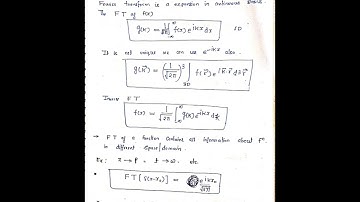 Fourier transform is a expansion in continuous basis.
The FT of f(x)
g(k) = ∫_{-∞}^{∞} f(x) e^{ikx} dx 1D
It is not unique we can use e^{-ikx} also
g(k⃗) = (1/√2π)³ ∫ f(r⃗) e^{i k⃗·r⃗} d³r⃗
3D
Inverse FT
f(x) = 1/√2π ∫_{-∞}^{∞} g(k) e^{-ikx} dk
→ FT of a function contains all information about fⁿ
in different space/domain.
Ex: x → p t → ω. etc
FT[δ(x-x₀)] = e^{ikx₀}/√2π